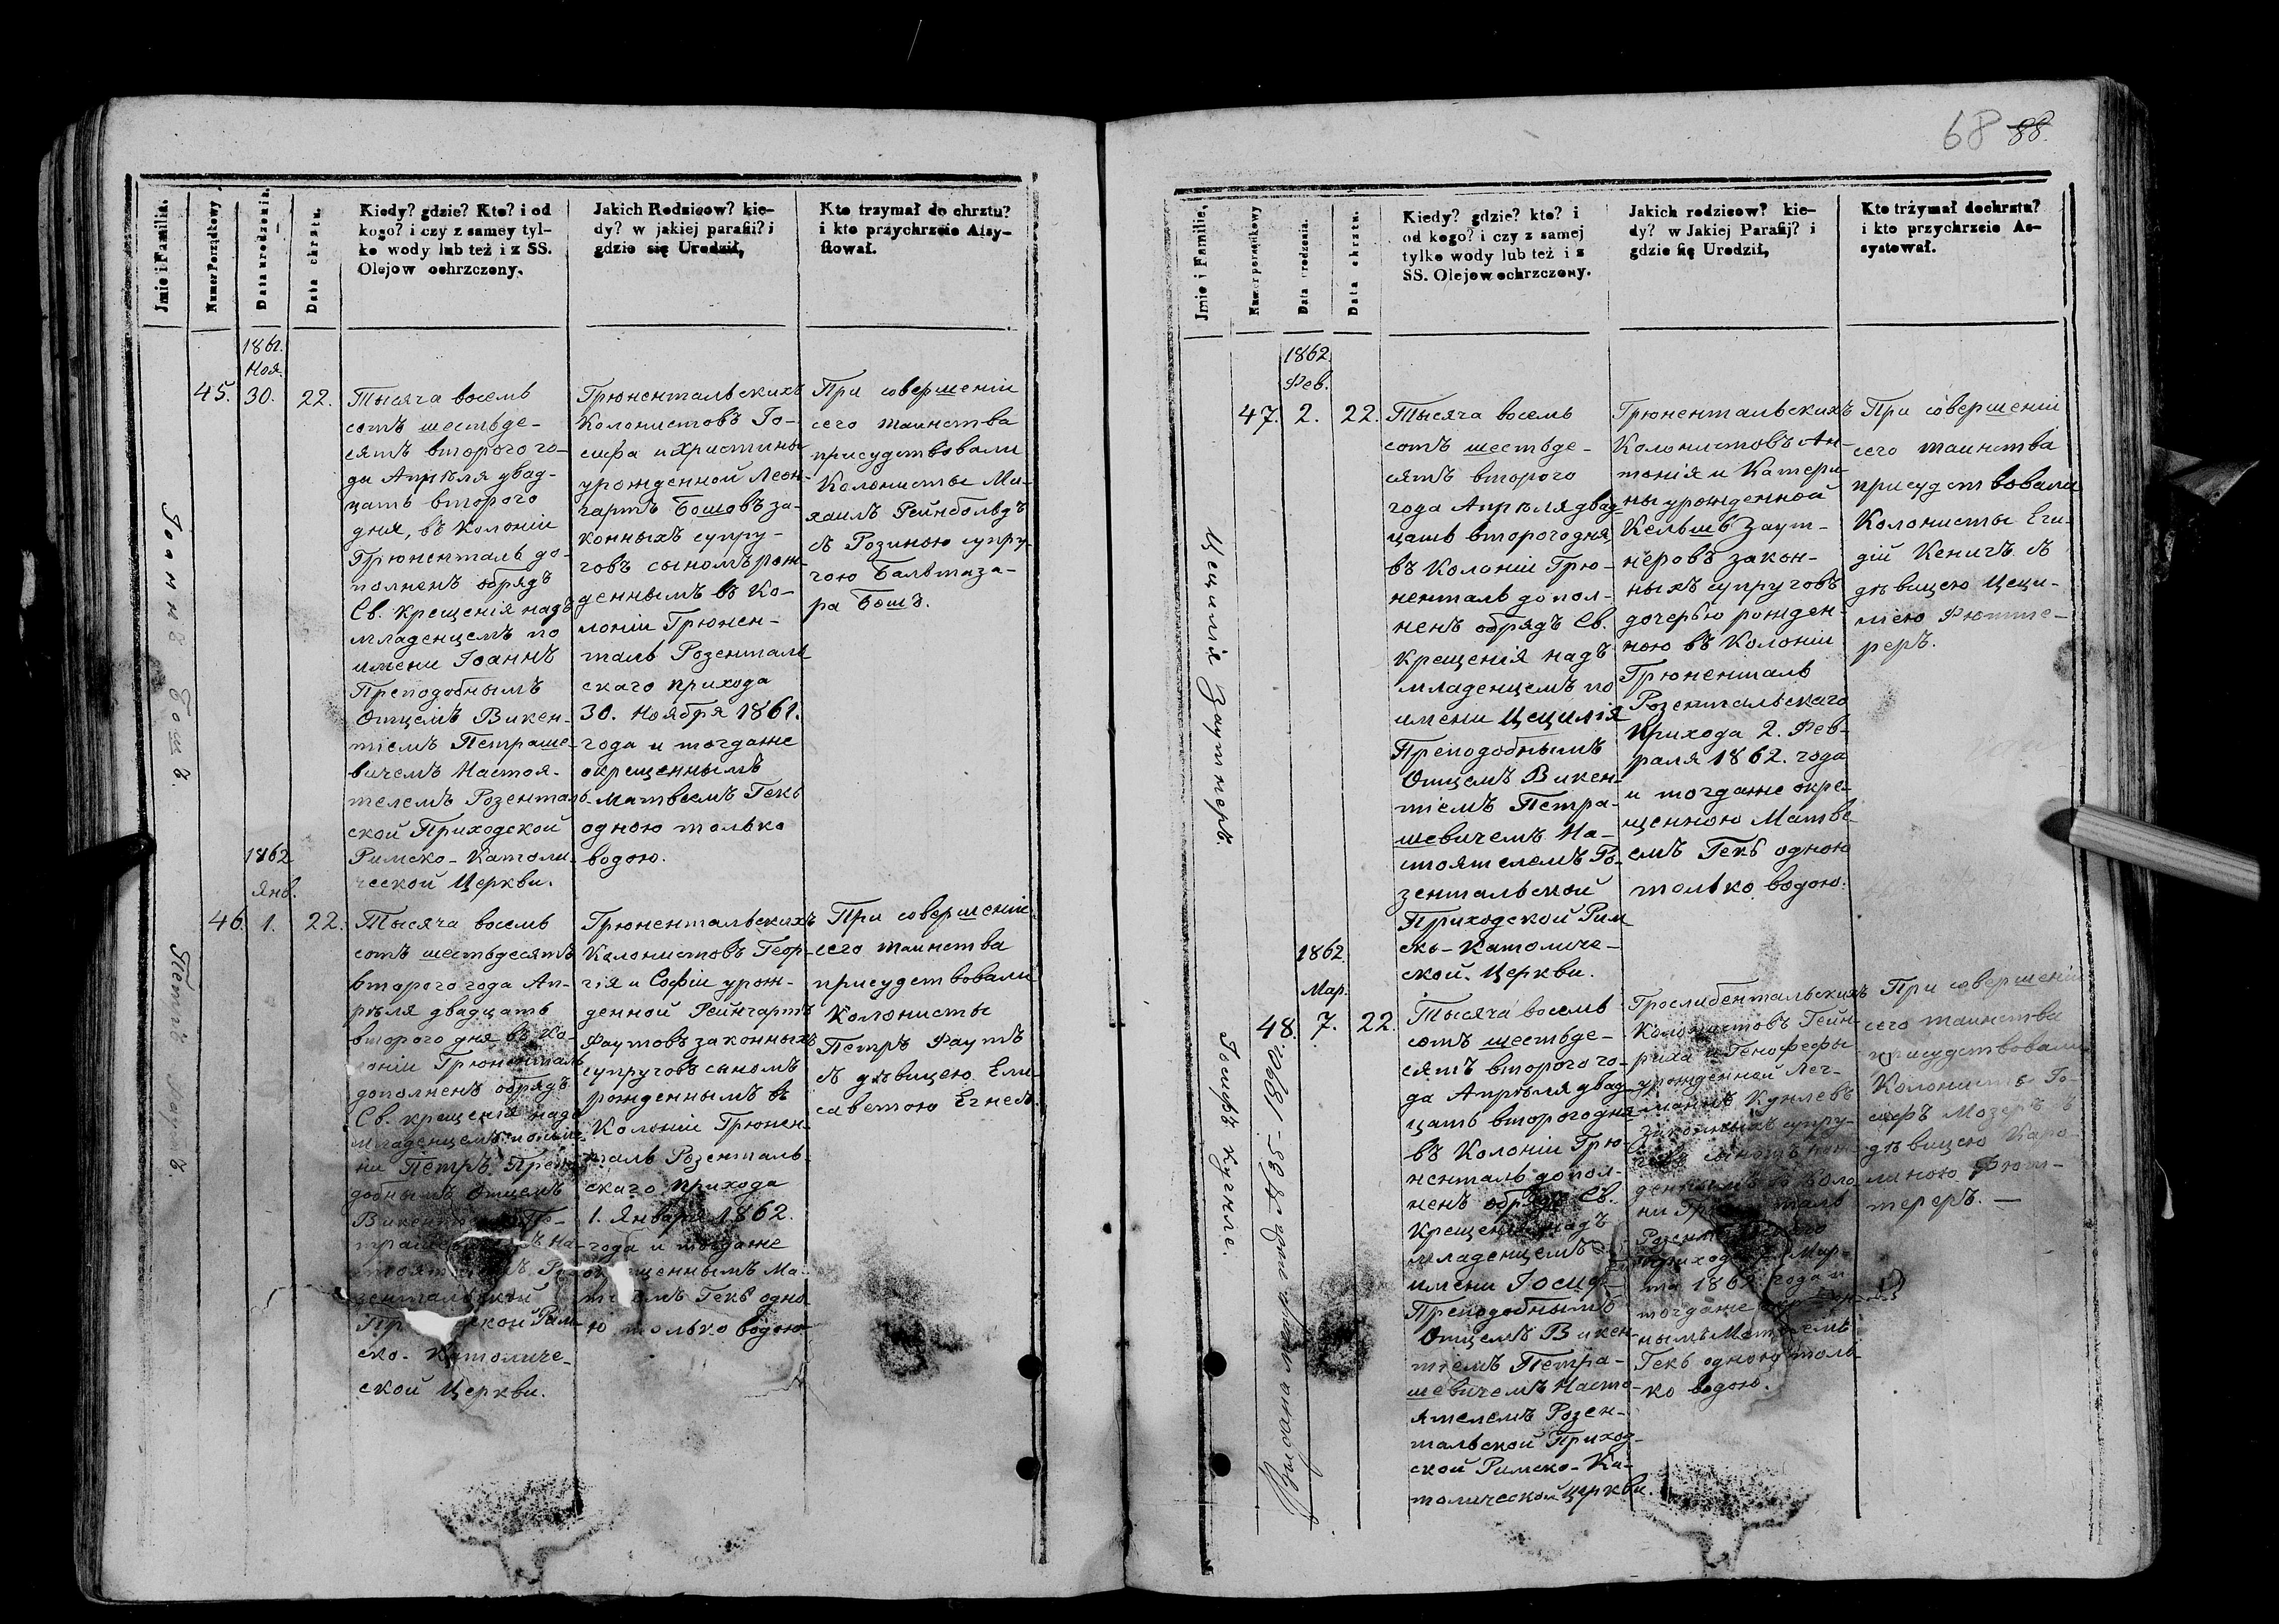 68 88.
Jmie i Familia.
Numer Porządkowy
Data urodzenia.
Data chrztu.
Kiedy? gdzie? Kto? i od
kogo? i czy z samey tyl-
ko wody lub też i z SS.
Olejow ochrzczony.
Jakich Rodzicow? kie-
dy? w jakiej parafii? i
gdzie się Urodził,
Kto trzymał do chrztu?
i kto przychrzcie Assy-
stował.
Іоаннъ Бошъ.
1861.
Ноя.
45. 30. 22.
Тысяча восемь
сотъ шестьде-
сятъ второго го-
да Апрѣля двад-
цать второго
дня, въ Колоніи
Грюненталь до-
полненъ обрядъ
Св. Крещенія надъ
младенцемъ по
имени Іоаннъ
Преподобнымъ
Отцемъ Викен-
тіемъ Петраше-
вичемъ Настоя-
телемъ Розенталь-
ской Приходской
Римско-Католи-
ческой Церкви.
Грюнентальскихъ
Колонистовъ Іо-
сифа и Христины
урожденной Леон-
гартъ Бошовъ за-
конныхъ супру-
говъ сыномъ рож-
деннымъ въ Ко-
лоніи Грюнен-
таль Розенталь-
скаго прихода
30. Ноября 1861.
года и тогдаже
окрещеннымъ
Матвеемъ Гекъ
одною только
водою.
При совершеніи
сего таинства
присудствовали
Колонисты Ми-
хаилъ Рейнбольдъ
съ Розиною супру-
гою Балтаза-
ра Бошъ.
Петръ Фаутъ.
1862
Янв.
46. 1. 22.
Тысяча восемь
сотъ шестьдесятъ
второго года Ап-
рѣля двадцать
второго дня въ Ко-
лоніи Грюненталь
дополненъ обрядъ
Св. крещенія надъ
младенцемъ по име-
ни Петръ Препо-
добнымъ Отцемъ
зентальской
ской Рим-
ско-Католиче-
ской Церкви.
Грюнентальскихъ
Колонистовъ Геор-
гія и Софіи урож-
денной Рейнгартъ
Фаутовъ законныхъ
супруговъ сыномъ
рожденнымъ въ
Колоніи Грюнен-
таль Розенталь-
скаго прихода
1. Января 1862.
года и тогдаже
щеннымъ Ма-
емъ Гекъ одно-
ю только водою
При совершеніи
сего таинства
присудствовали
Колонисты
Петръ Фаутъ
съ дѣвицею Ели-
саветою Егнеръ.
Jmie i Familia,
Numer porządkowy
Data urodzenia.
Data chrztu.
Kiedy? gdzie? kto? i
od kogo? i czy z samej
tylko wody lub też i z
SS. Olejow ochrzczony.
Jakich rodzicow? kie-
dy? w Jakiej Parafij? i
gdzie się Urodził,
Kto trżymał dochrztu?
i kto przychrzcie As-
systował.
Цецилія Заутнеръ.
1862.
Фев.
47. 2. 22.
Тысяча восемь
сотъ шестьде-
сятъ второго
года Апрѣля двад-
цать второго дня,
въ Колоніи Грю-
ненталь допол-
ненъ обрядъ Св.
Крещенія надъ
младенцемъ по
имени Цецилія
Преподобнымъ
Отцемъ Викен-
тіемъ Петра-
шевичемъ На-
стоятелемъ Ро-
зентальской
Приходской Рим-
ско-Католиче-
ской Церкви.
Грюнентальскихъ
Колонистовъ Ан-
тонія и Катери-
ны урожденной
Кельшъ Заут-
неровъ закон-
ныхъ супруговъ
дочерью рожден-
ною въ Колоніи
Грюненталь
Розентальскаго
Прихода 2. Фев-
раля 1862. года
и тогдаже окре-
щенною Матве-
емъ Гекъ одною
только водою.
При совершеніи
сего таинства
присудствовали
Колонисты Еги-
дій Кеничъ съ
дѣвицею Цеци-
ліею Фютте-
реръ.
Іосифъ Кунгле.
1862.
Мар.
48. 7. 22.
Выдана метр. подъ № 35-1880 г.
Тысяча восемь
сотъ шестьде-
сятъ второго го-
да Апрѣля двад-
цать второго дня
въ Колоніи Грю-
ненталь допол-
ненъ обрядъ Св.
Крещенія надъ
младенцемъ
имени Іосифъ
Преподобнымъ
Отцемъ Викен-
тіемъ Петра-
шевичемъ Насто-
ятелемъ Розен-
тальской Приход-
ской Римско-Ка-
толической Церкви.
Грослибентальскихъ
Колонистовъ Гейн-
риха и Генофефы
урожденной Лег-
маннъ Кунлевъ
законныхъ супру-
говъ сыномъ рож-
деннымъ въ Коло-
прихода Мар-
та 1862 года и
тогдаже
нымъ Матвеемъ
Гекъ одною толь-
ко водою.
При совершеніи
сего таинства
присудствовали
Колонисты Іо-
сифъ Мозеръ съ
дѣвицею Каро-
линою Фют-
тереръ. —